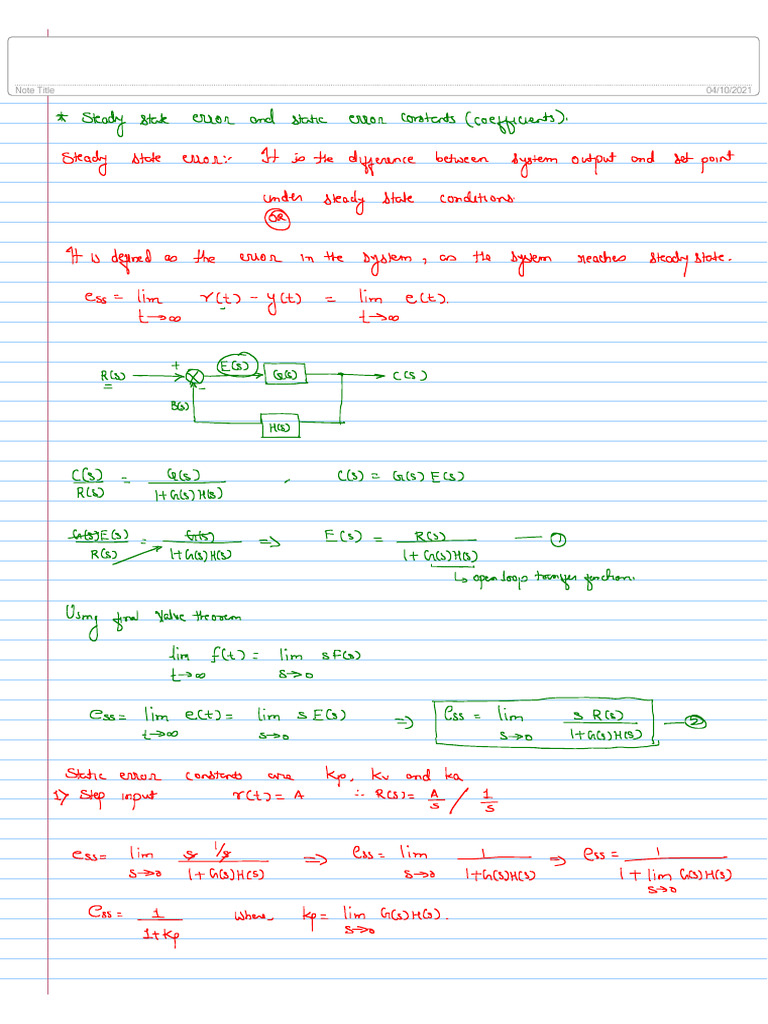 Note Title
04/10/2021
* Steady state error and static error constants (coefficients).
Steady state error:- It is the difference between system output and set point
under steady state conditions
OR
It is defined as the error in the system, as the system reaches steady state.
ess = lim t→∞ r(t) - y(t) = lim t→∞ e(t).
R(s) + - E(s) G(s) C(s)
B(s)
H(s)
C(s)/R(s) = G(s)/1+G(s)H(s) , C(s) = G(s) E(s)
G(s)E(s)/R(s) = G(s)/1+G(s)H(s) => E(s) = R(s)/1+G(s)H(s) — ①
↳ open loop transfer function.
Using final value theorem
lim t→∞ f(t) = lim s→0 sF(s)
ess = lim t→∞ e(t) = lim s→0 s E(s) => ess = lim s→0 s R(s)/1+G(s)H(s) — ②
Static error constants are kp, kv and ka
1) Step input r(t) = A ∴ R(s) = A/s / 1/s
ess = lim s→0 s 1/s / 1+G(s)H(s) => ess = lim s→0 1/1+G(s)H(s) => ess = 1/1+lim s→0 G(s)H(s)
ess = 1/1+kp where, kp = lim s→0 G(s)H(s).